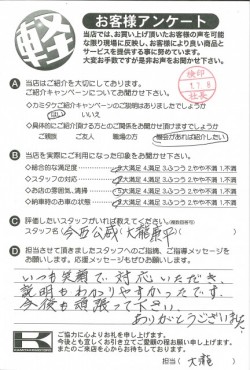 軽
お客様アンケート
当店では、お買い上げ頂いたお客様の声を可能
な限り現場に反映し、お客様により良い商品と
サービスを提供する事に努めています。
大変お手数ですが是非お声をお聞かせ下さい。
A 当店はご紹介を大切にしております。
ご紹介キャンペーンについてお聞かせ下さい。
はい いいえ
ご親族 ご友人 職場の方 機会があれば紹介したい
B 当店を実際にご利用になった印象をお聞かせ下さい。
・総合的な満足度 5大満足 4.満足 3.ふつう 2.やや不満 1.不満
・スタッフの対応 5大満足 4.満足 3.ふつう 2.やや不満 1.不満
・お店の雰囲気、清掃 5大満足 4.満足 3.ふつう 2.やや不満 1.不満
・納車時のお車の状態 5大満足 4.満足 3.ふつう 2.やや不満 1.不満
C 評価したいスタッフがいれば教えてください。
スタッフ名
D 担当させて頂きましたスタッフへのご指摘、ご指導メッセージを
お願いします。応援メッセージもぜひお願いします!
いつも笑顔で対応いただき
説明もわかりやすかったです。
今後も頑張って下さい。
ありがとうございました
K
ご協力に心よりお礼を申し上げます。
今後とも宜しくお引き立てご愛顧の程お願い申し上げます。
またのご来店を心からお待ちしております。
担当